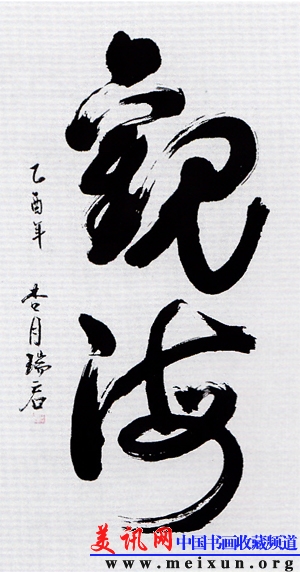 觀海
乙酉年 杏月瑞君
美讯网
中国书画收藏频道
www.meixun.org